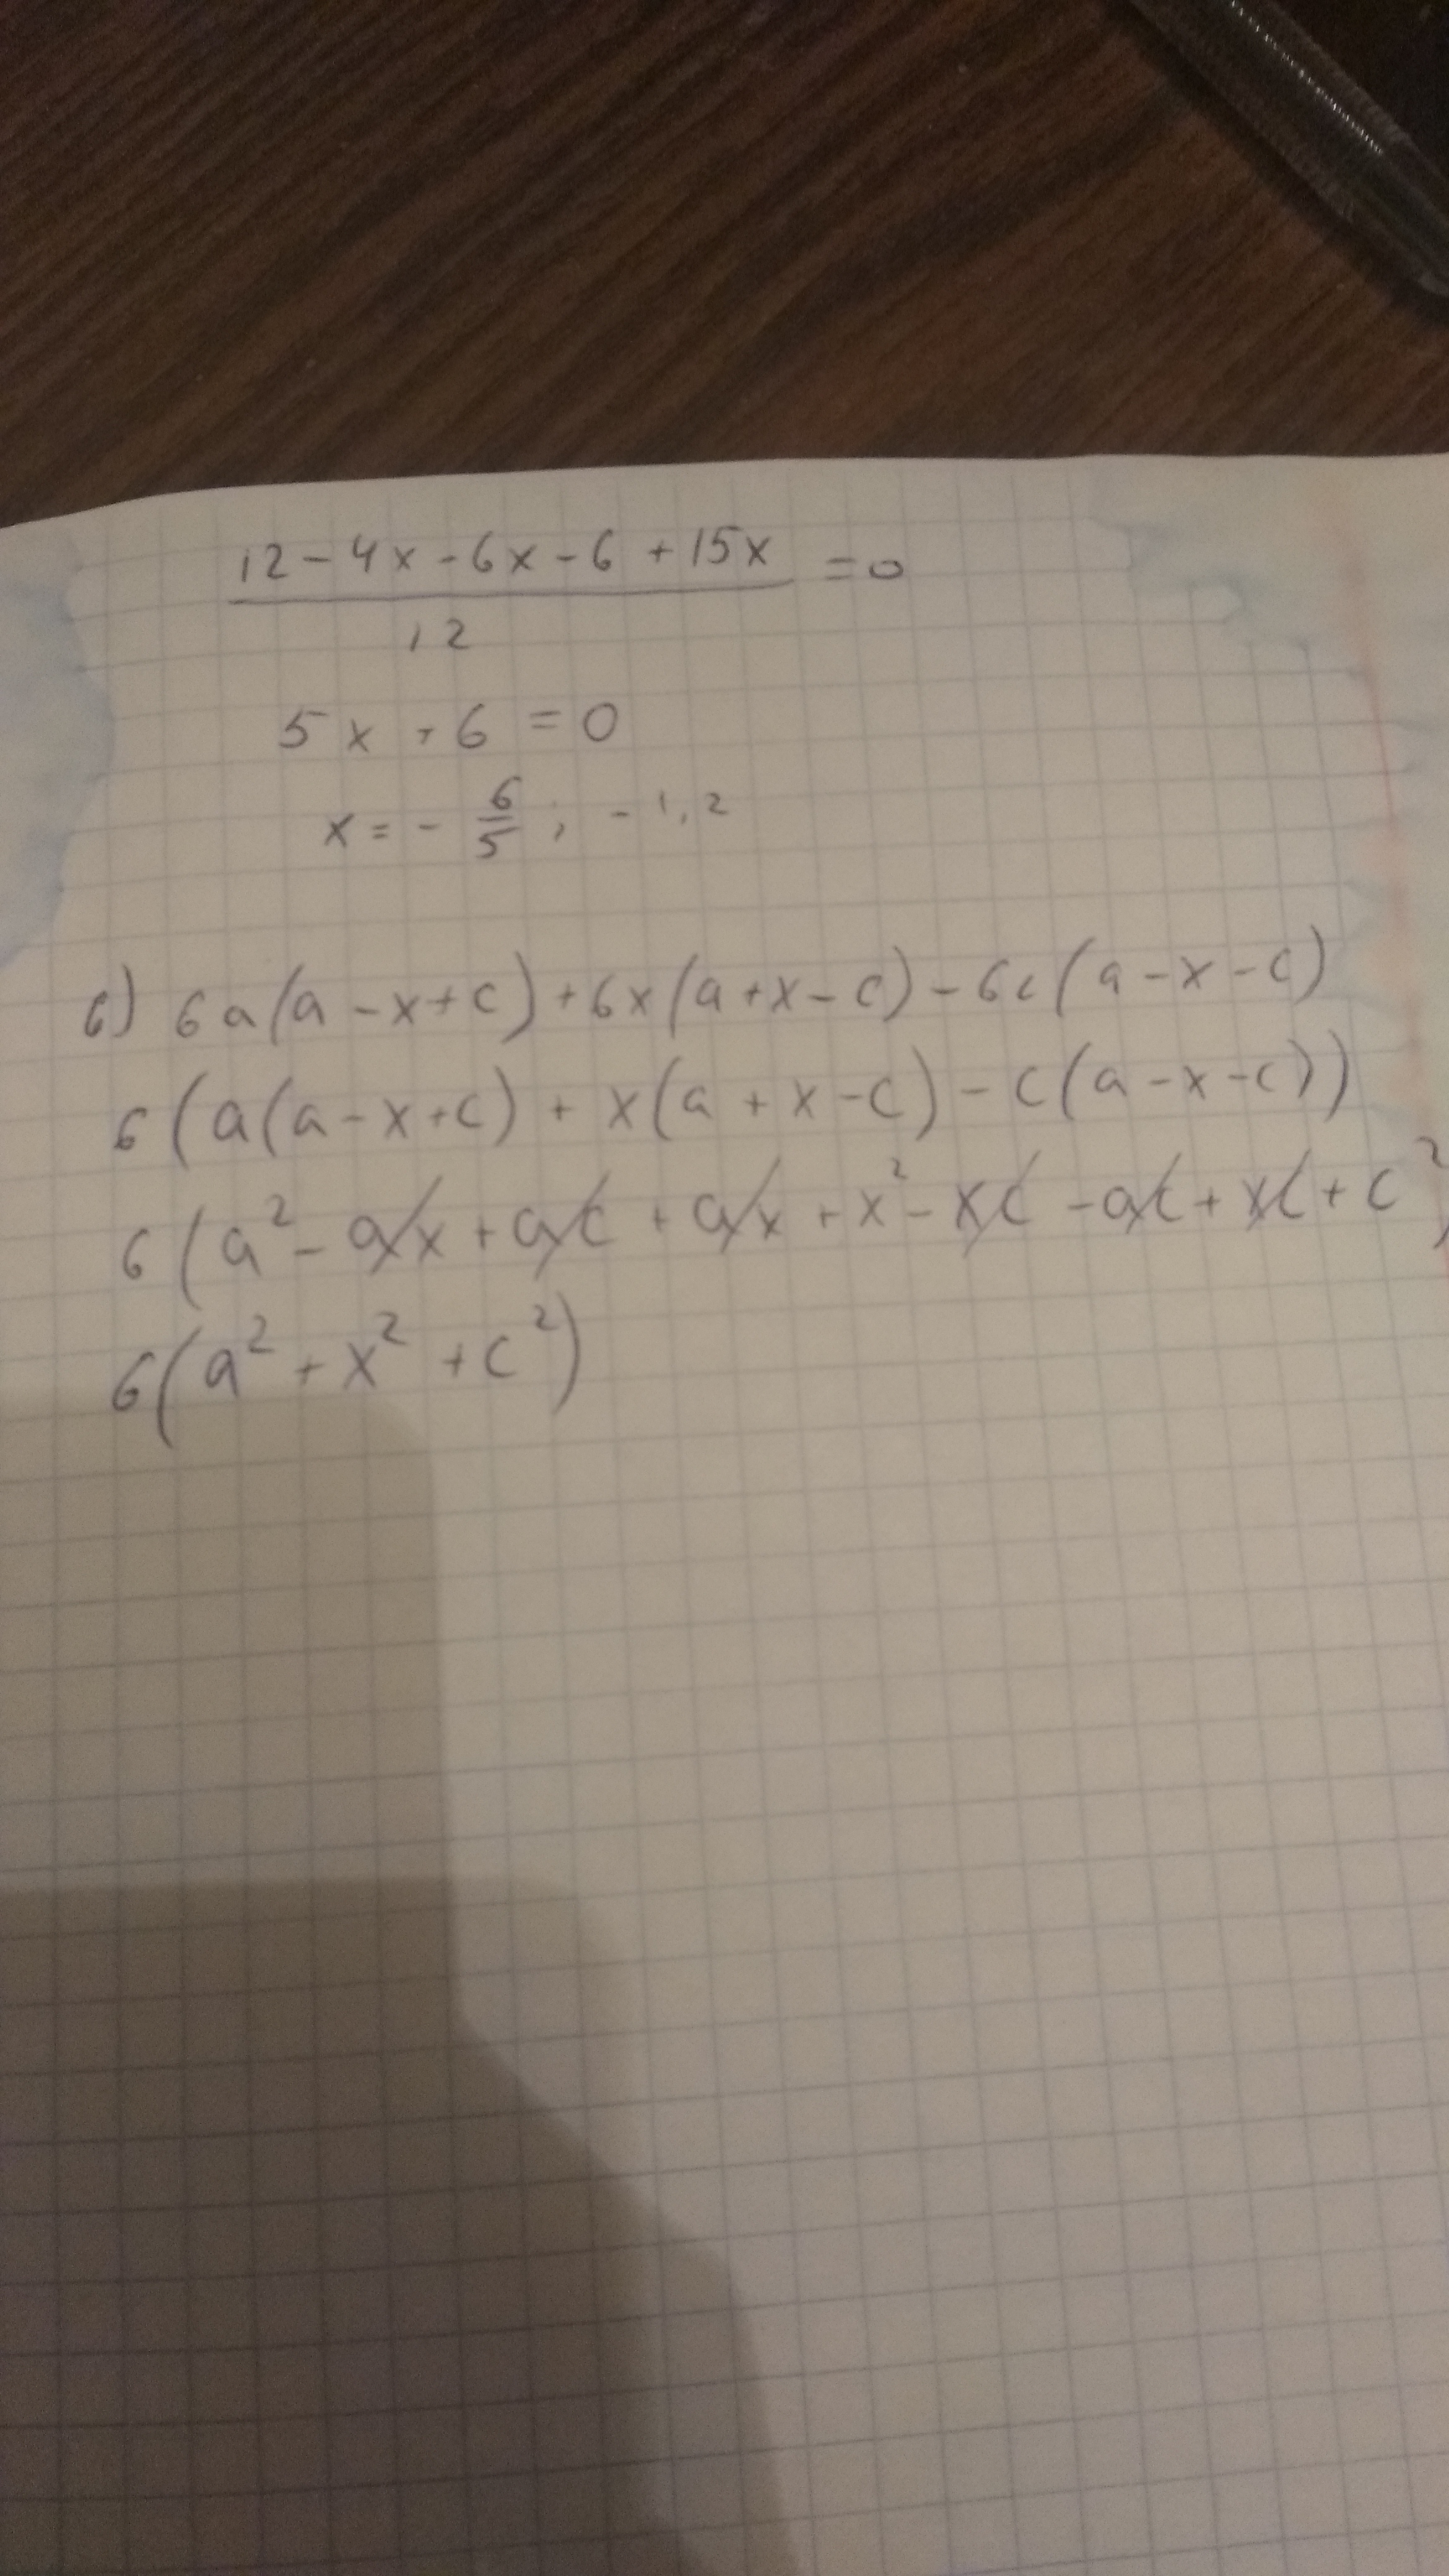 12 - 4x - 6x - 6 + 15x = 0
12
5x + 6 = 0
x = - 6/5 ; - 1,2
6) 6a(a - x + c) + 6x(a + x - c) - 6c(a - x - c)
6(a(a - x + c) + x(a + x - c) - c(a - x - c))
6(a² - ax + ac + ax + x² - xc - ac + xc + c²)
6(a² + x² + c²)